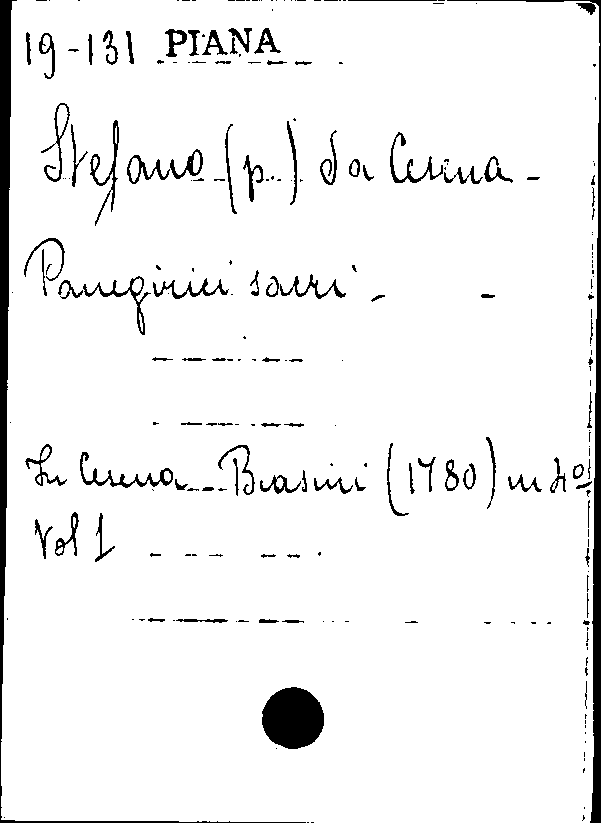 19-131 PIANA
Stefano (p.) da Cesena -
Panegirici sacri - -
In Cesena Biasini (1780) in 4º
Vol 1